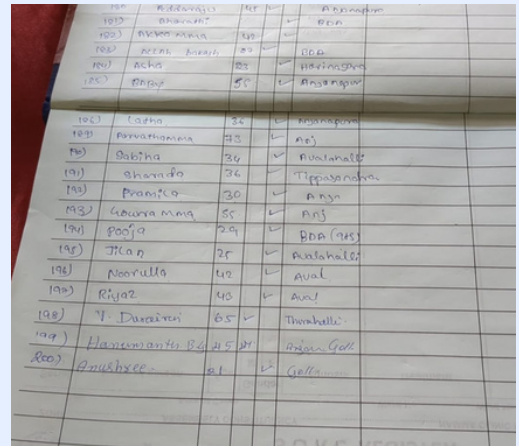 Addaraju 45 ✓ Anjanapura
181) Bharathi ✓ BDA
182) ✓
183) ✓ BDA
184) Asha 23 ✓ Harinagara
185) Baby 55 ✓ Anjanapur
186) Latha 36 ✓ Anjanapura
189) Parvathamma 73 ✓ Anj
190) Sabiha 34 ✓ Avalahalli
191) Sharada 36 ✓ Tippasandra
192) Pramila 30 ✓ Anjn
193) Gowramma 55 ✓ Anj
194) Pooja 29 ✓ BDA (9th8)
195) Jilan 25 ✓ Avalahalli
196) Noorulla 42 ✓ Aval
197) Riyaz 43 ✓ Aval
198) V. Durairaj 65 ✓ Thurahalli.
199) Hanumanth 45 Goll
200) Anushree. 21 ✓ Goll